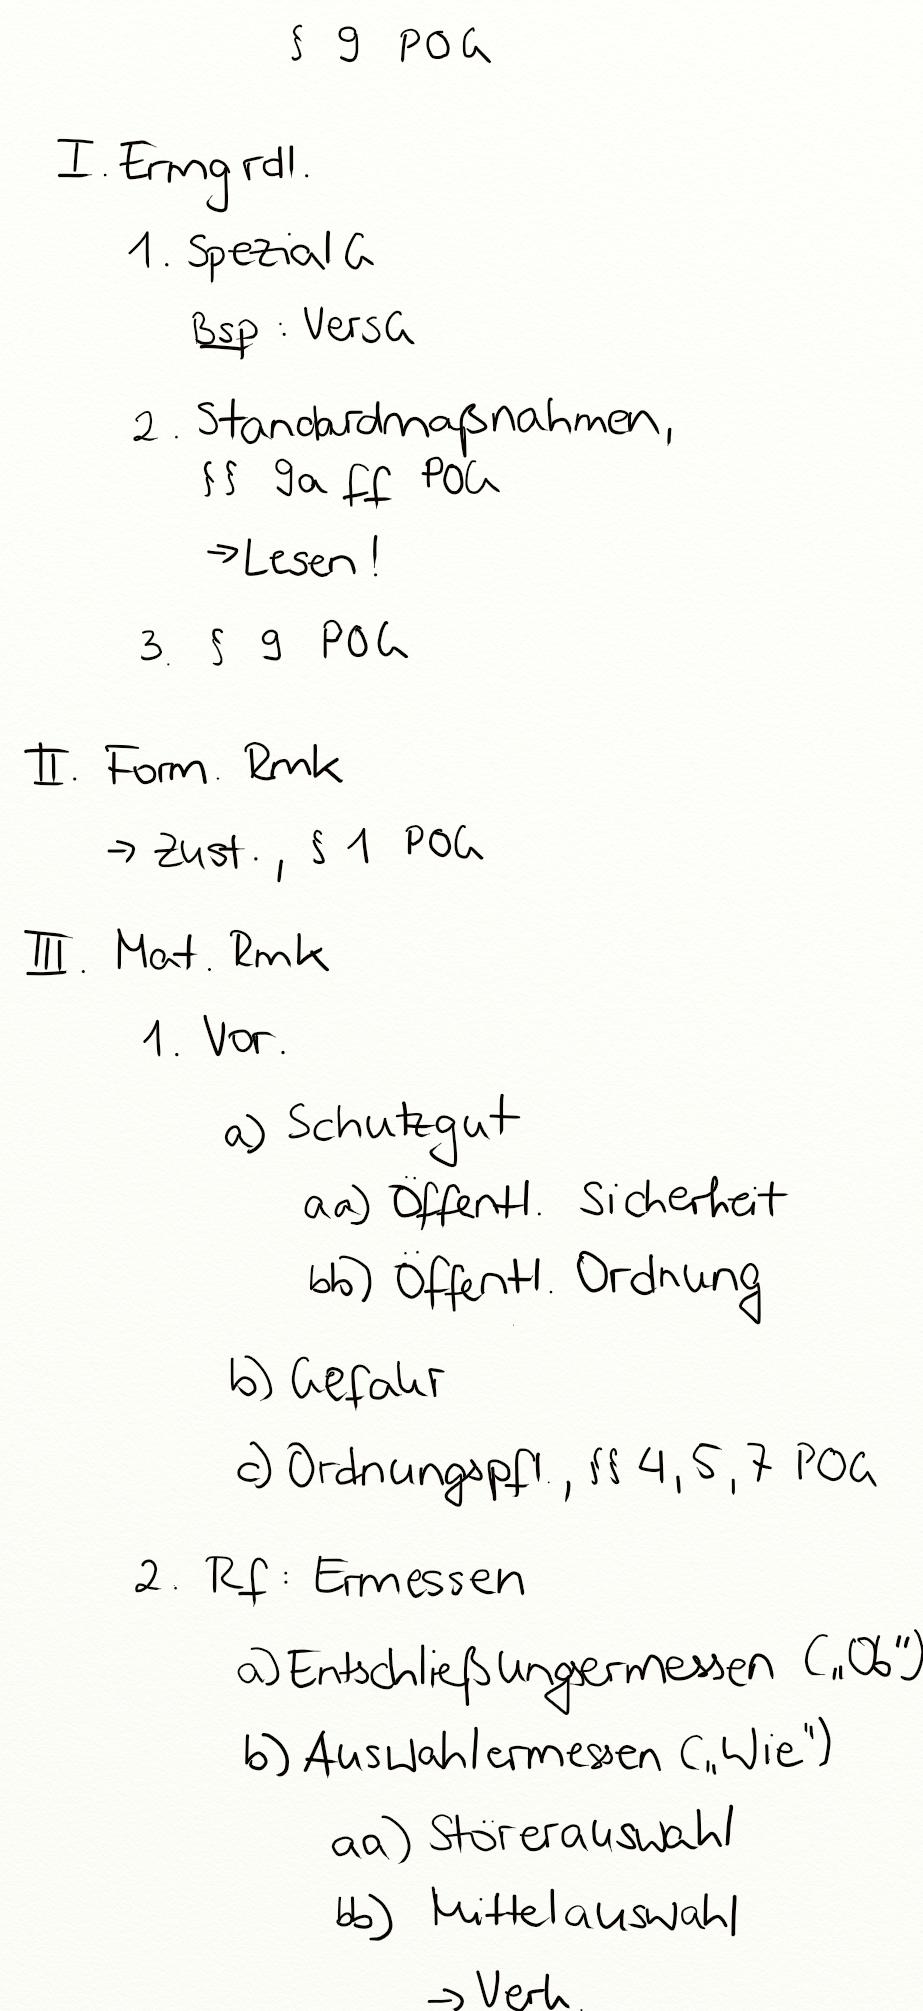 § 9 POG
I. Ermgrdl.
1. SpezialG
Bsp: VersG
2. Standardmaßnahmen,
§§ 9a ff POG
→ Lesen!
3. § 9 POG
II. Form. Rmk
→ Zust., § 1 POG
III. Mat. Rmk
1. Vor.
a) Schutzgut
aa) Öffentl. Sicherheit
bb) Öffentl. Ordnung
b) Gefahr
c) Ordnungspfl., §§ 4, 5, 7 POG
2. Rf: Ermessen
a) Entschließungsermessen („Ob")
b) Auswahlermessen („Wie")
aa) Störerauswahl
bb) Mittelauswahl
→ Verh.